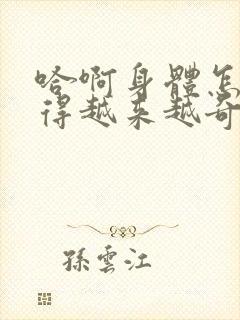 哈啊身體怎
得越来越奇
孫雲江